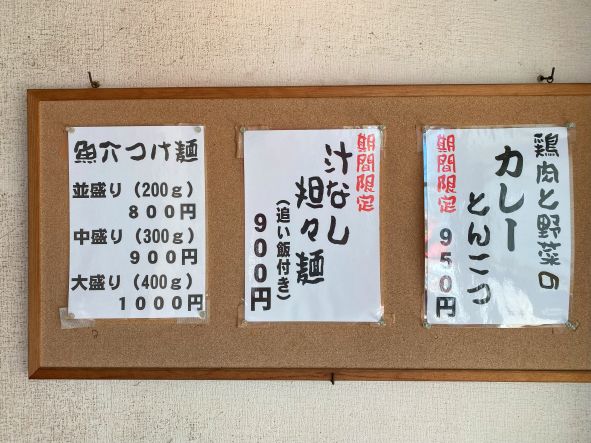 魚介つけ麺
並盛り（200g）
800円
中盛り（300g）
900円
大盛り（400g）
1000円
期間限定
汁なし
担々麺
（追い飯付き）
900円
鶏肉と野菜の
カレー
とんこつ
期間限定
950円